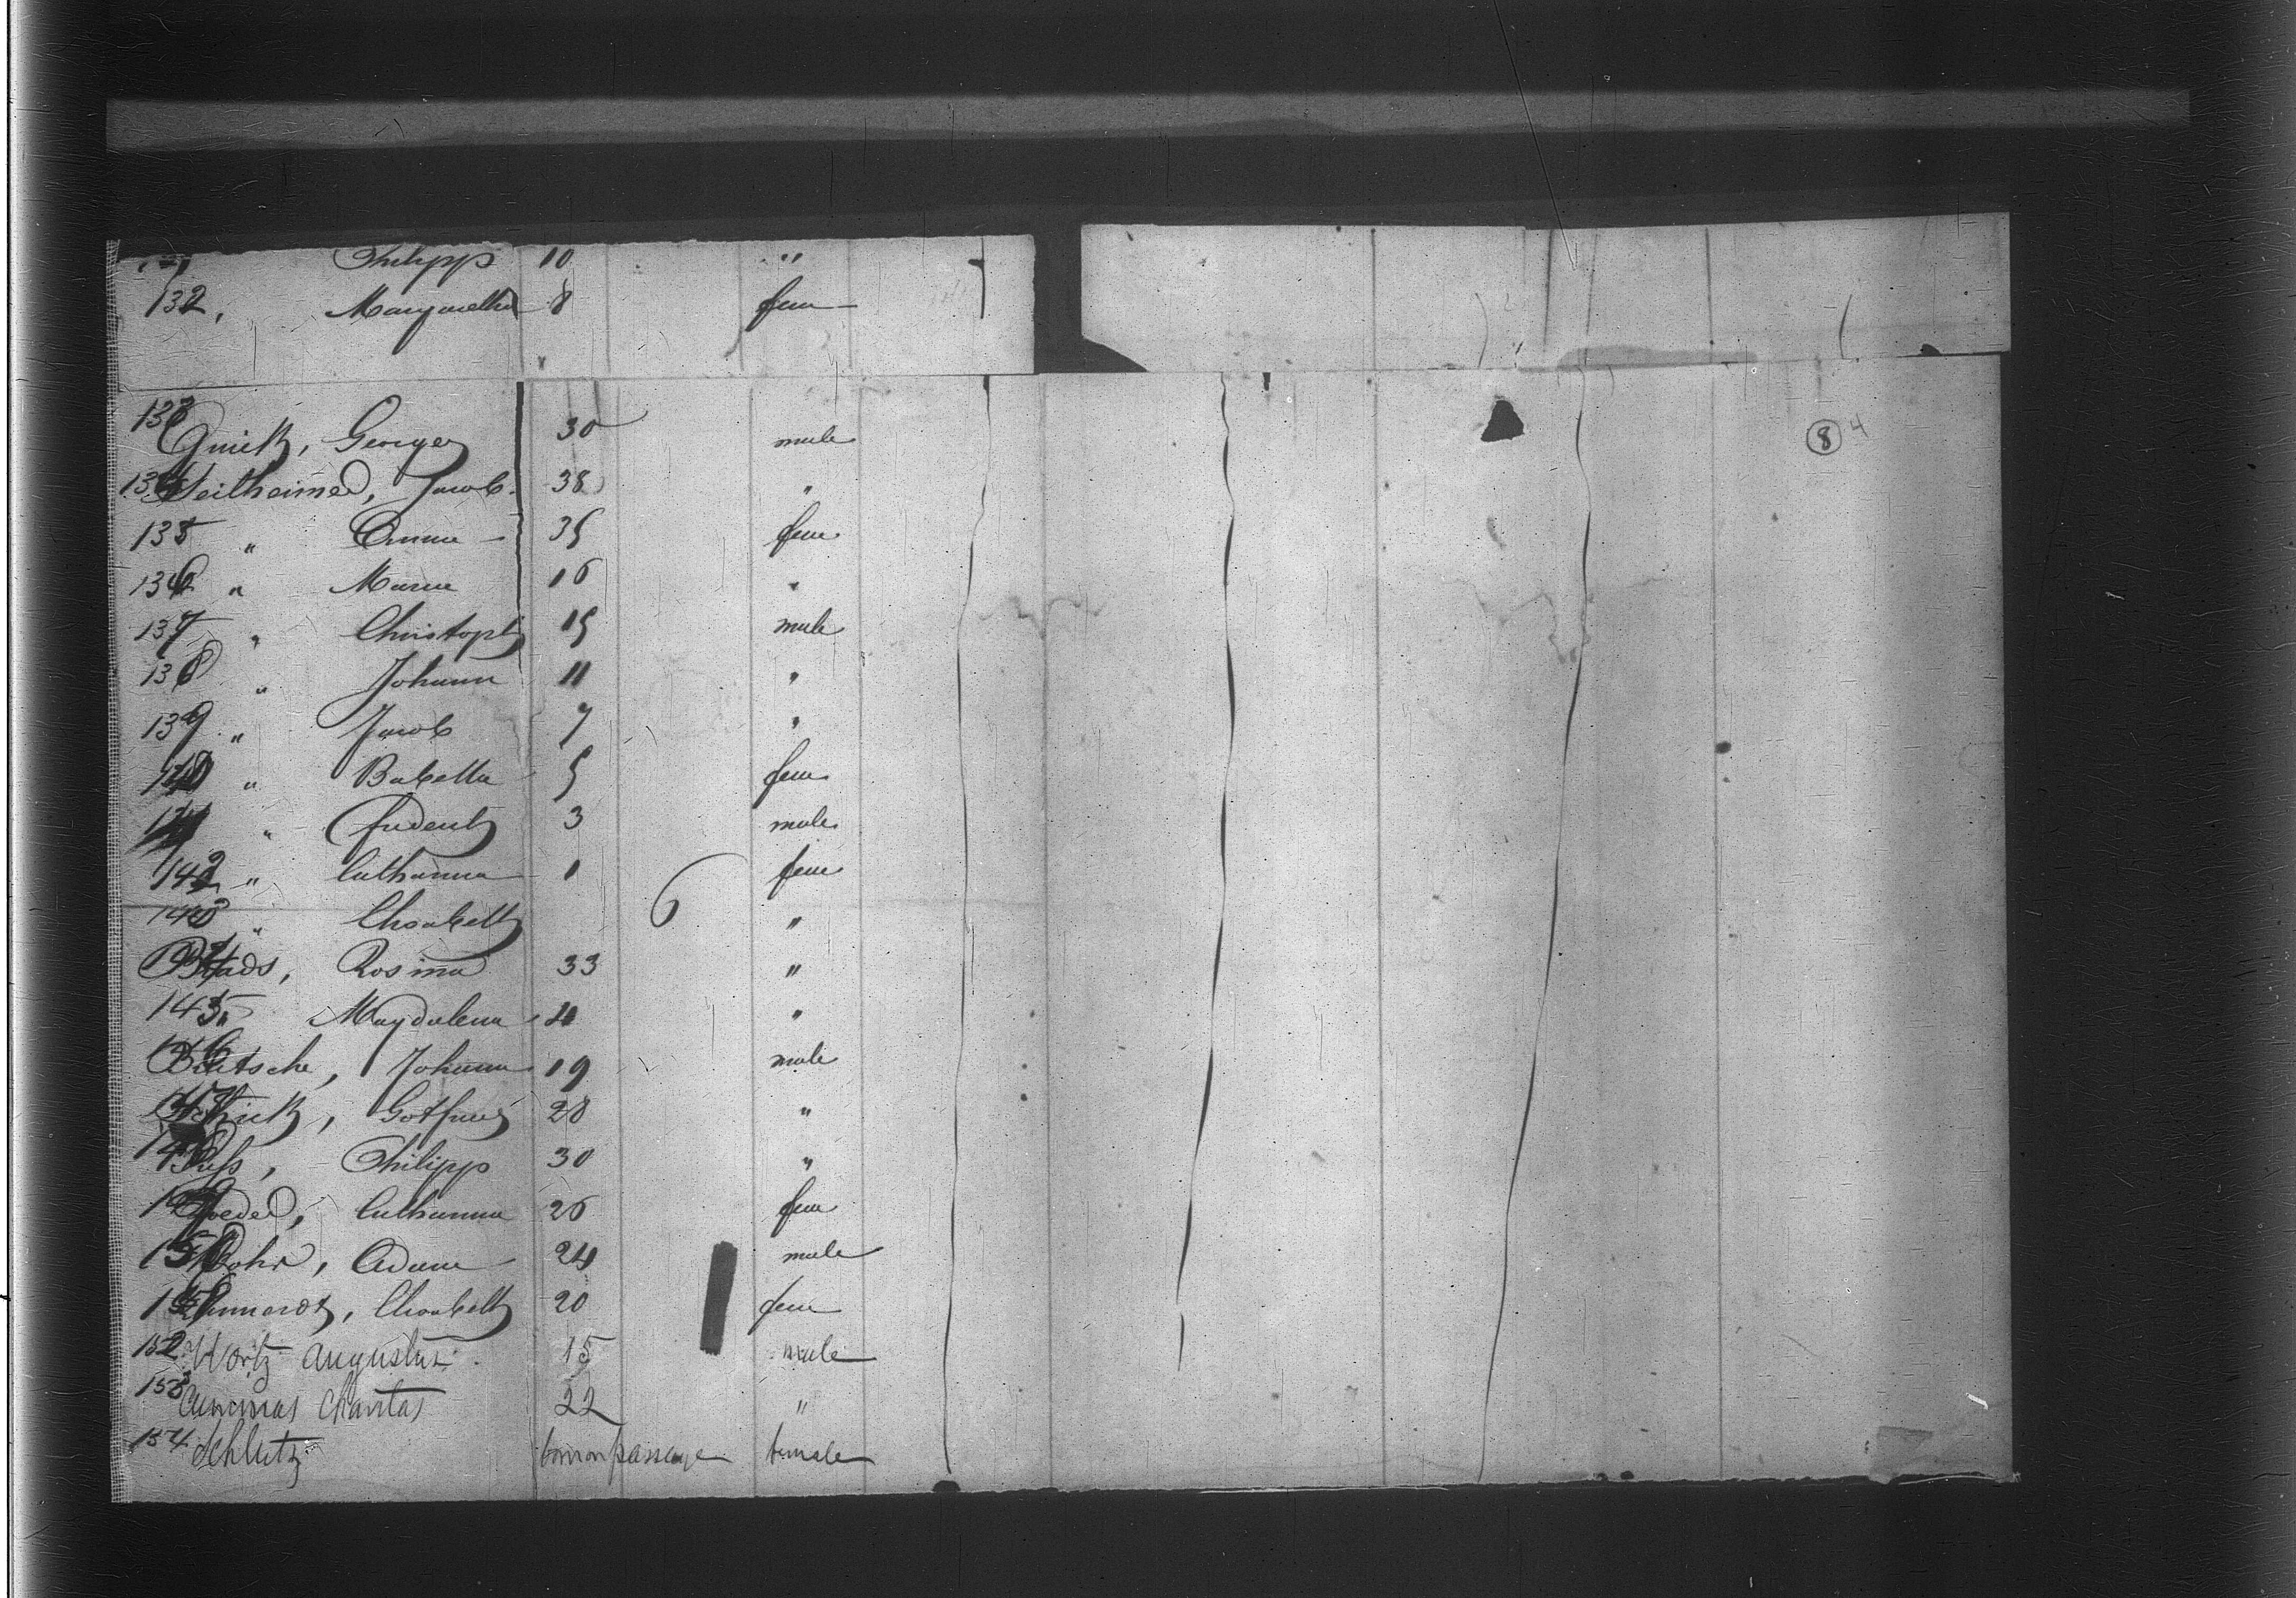 131 Philipp 10 "
132, Margaretha 8 fem
133 Quirk, George 30 male
134 Seitheimer, Jacob 38 "
135 " Emma 35 fem
136 " Marie 16 "
137 " Christoph 15 male
138 " Johann 11 "
139 " Jacob 7 "
140 " Babetta 5 fem
141 " 3 male
142 " Catharina 1 fem
143 " Elisabeth 6 "
144 Rosina 33 "
145 " Magdalena 4 "
146 Johann 19 male
147 Gottfried 28 "
148 , Philipp 30 "
149 , Catharina 26 fem
150 Rohr, Adam 24 male
151 , Elisabeth 20 fem
152 Wortz Augustus 15 male
153 22 "
154 Schlutz born on passage female
8 4